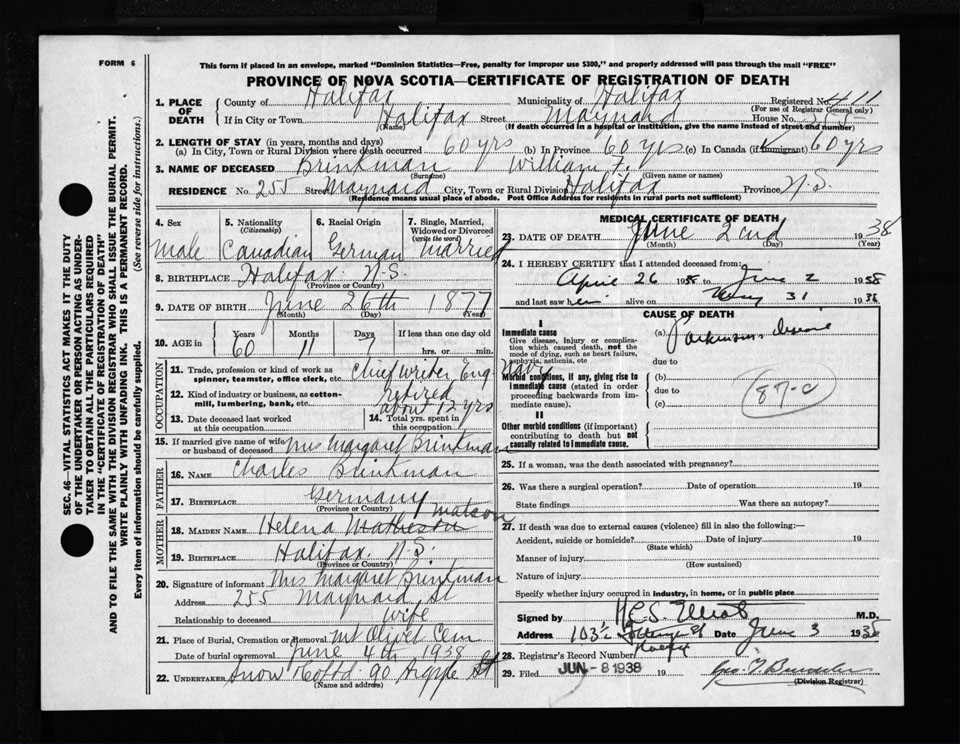 FORM 6
This form if placed in an envelope, marked "Dominion Statistics—Free, penalty for improper use $300," and properly addressed will pass through the mail "FREE"
PROVINCE OF NOVA SCOTIA—CERTIFICATE OF REGISTRATION OF DEATH
1. PLACE OF DEATH County of Halifax Municipality of Halifax Registered No. 411
(For use of Registrar General only)
If in City or Town Halifax Street Maynard House No. 255
(Name) (If death occurred in a hospital or institution, give the name instead of street and number)
2. LENGTH OF STAY (in years, months and days)
(a) In City, Town or Rural Division where death occurred 60 yrs (b) In Province 60 yrs (c) In Canada (if immigrant) 60 yrs
3. NAME OF DECEASED Brinkman William F.
(Surname) (Given name or names)
RESIDENCE No. 255 Street Maynard City, Town or Rural Division Halifax Province N.S.
(Residence means usual place of abode. Post Office Address for residents in rural parts not sufficient)
4. Sex 5. Nationality (Citizenship) 6. Racial Origin 7. Single, Married, Widowed or Divorced (write the word)
Male Canadian German Married
8. BIRTHPLACE Halifax N.S.
(Province or Country)
9. DATE OF BIRTH June 26th 1877
(Month) (Day) (Year)
10. AGE in Years Months Days If less than one day old
60 11 7 hrs. or min.
OCCUPATION
11. Trade, profession or kind of work as spinner, teamster, office clerk, etc. Chief Writer Eng. Navy
12. Kind of industry or business, as cotton-mill, lumbering, bank, etc. retired
13. Date deceased last worked at this occupation about 12 yrs
14. Total yrs. spent in this occupation
15. If married give name of wife or husband of deceased Mrs Margaret Brinkman
FATHER
16. NAME Charles Brinkman
17. BIRTHPLACE Germany
(Province or Country)
MOTHER
18. MAIDEN NAME Helena Matheson Matson
19. BIRTHPLACE Halifax. N.S.
(Province or Country)
20. Signature of informant Mrs Margaret Brinkman
Address 255 Maynard St
Relationship to deceased wife
21. Place of Burial, Cremation or Removal Mt Olivet Cem
Date of burial or removal June 4th 1938
22. UNDERTAKER Snow & Co Ltd 90 Argyle St
(Name and address)
MEDICAL CERTIFICATE OF DEATH
23. DATE OF DEATH June 2nd 1938
(Month) (Day) (Year)
24. I HEREBY CERTIFY that I attended deceased from:
April 26 1938 to June 2 1938
and last saw him alive on May 31 1938
CAUSE OF DEATH
I
Immediate cause
Give disease, injury or complication which caused death, not the mode of dying, such as heart failure, asphyxia, asthenia, etc
(a) Parkinsons disease
due to
Morbid conditions, if any, giving rise to immediate cause (stated in order proceeding backwards from immediate cause).
(b)
due to
(c)
87-c
II
Other morbid conditions (if important) contributing to death but not causally related to immediate cause.
25. If a woman, was the death associated with pregnancy?
26. Was there a surgical operation? Date of operation 19
State findings Was there an autopsy?
27. If death was due to external causes (violence) fill in also the following:—
Accident, suicide or homicide? Date of injury 19
(State which)
Manner of injury
(How sustained)
Nature of injury
Specify whether injury occurred in industry, in home, or in public place
Signed by M.D.
Address 103½ Halifax Date June 3 1938
28. Registrar's Record Number
29. Filed JUN - 8 1938 19
(Division Registrar)
SEC. 46—VITAL STATISTICS ACT MAKES IT THE DUTY
OF THE UNDERTAKER OR PERSON ACTING AS UNDER-
TAKER TO OBTAIN ALL THE PARTICULARS REQUIRED
IN THE "CERTIFICATE OF REGISTRATION OF DEATH"
AND TO FILE THE SAME WITH THE DIVISION REGISTRAR WHO SHALL ISSUE THE BURIAL PERMIT.
WRITE PLAINLY WITH UNFADING INK. THIS IS A PERMANENT RECORD.
Every item of information should be carefully supplied. (See reverse side for instructions.)